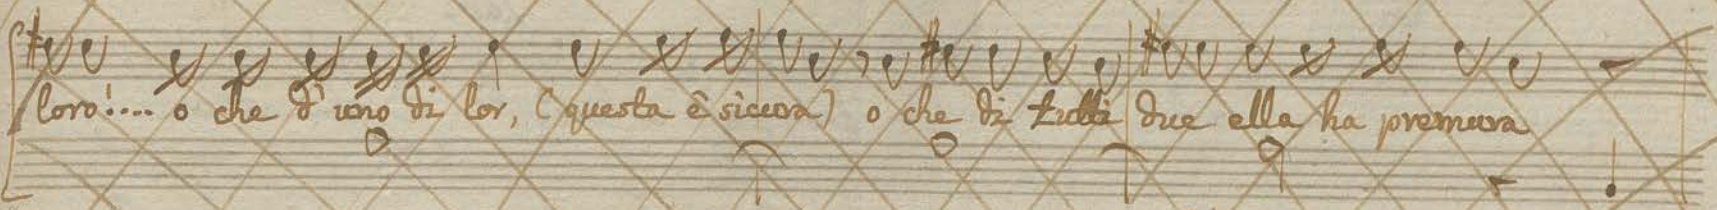 loro!.... o che d'uno di lor, (questa è sicura) o che di tutti due ella ha premura